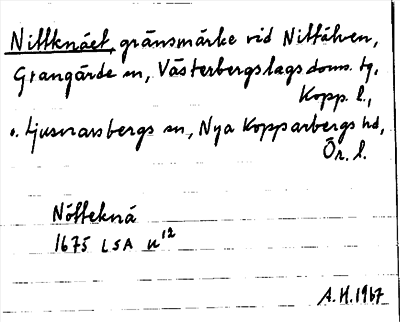 Nittknäet, gränsmärke vid Nittälven,
Grangärde sn, Västerbergslags doms. tg,
Kopp. l.,
o. Ljusnarsbergs sn, Nya Kopparbergs hd,
Ör. l.
Nötteknä
1675 LSA u12
A.H. 1967